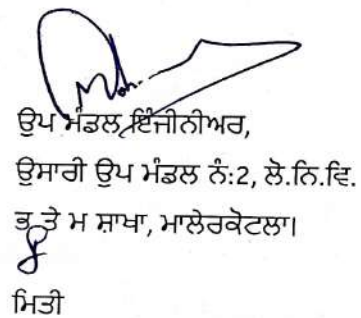 ਉਪ ਮੰਡਲ ਇੰਜੀਨੀਅਰ,
ਉਸਾਰੀ ਉਪ ਮੰਡਲ ਨੰ:2, ਲੋ.ਨਿ.ਵਿ.
ਭ ਤੇ ਮ ਸ਼ਾਖਾ, ਮਾਲੇਰਕੋਟਲਾ।
ਮਿਤੀ